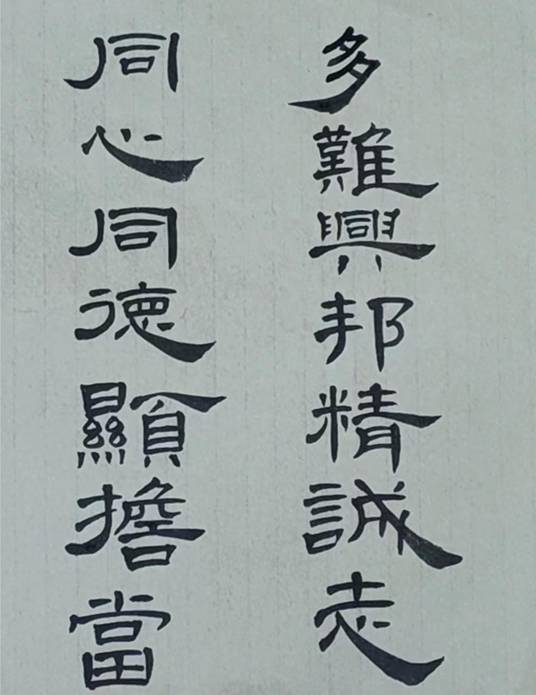 多難興邦精誠志
同心同德顯擔當